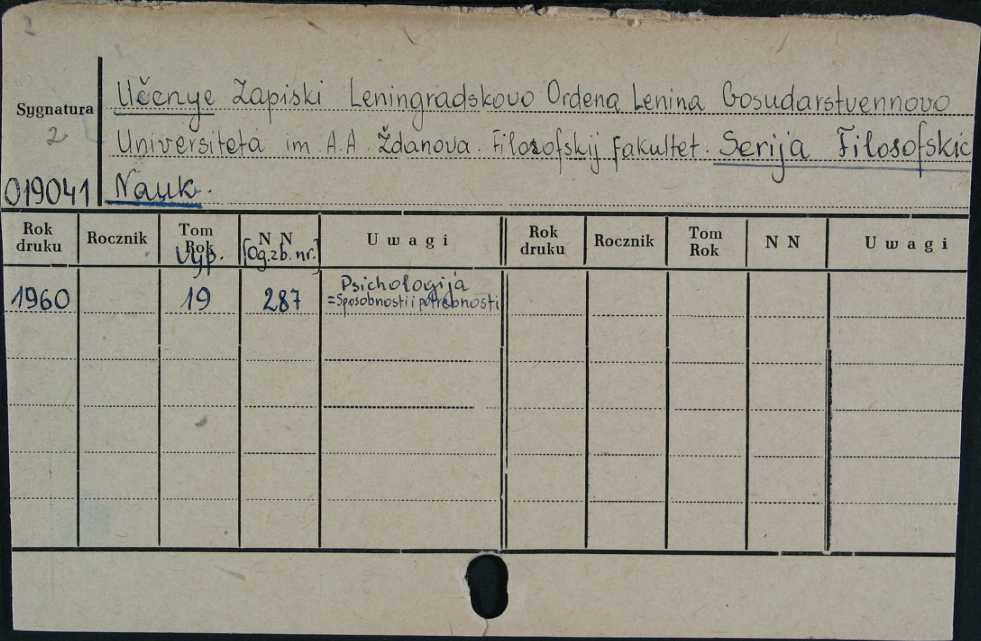 2
Učenye Zapiski Leningradskovo Ordena Lenina Gosudarstvennovo
Sygnatura
2
Universiteta im. A.A. Ždanova. Filozofskij fakultet. Serija Filosofskic
019041 Nauk.
Rok druku Rocznik Tom Rok Vyp. N N [Og.zb.nr.] Uwagi Rok druku Rocznik Tom Rok N N Uwagi
1960 19 287 Psichologija
=Sposobnosti i potrebnosti